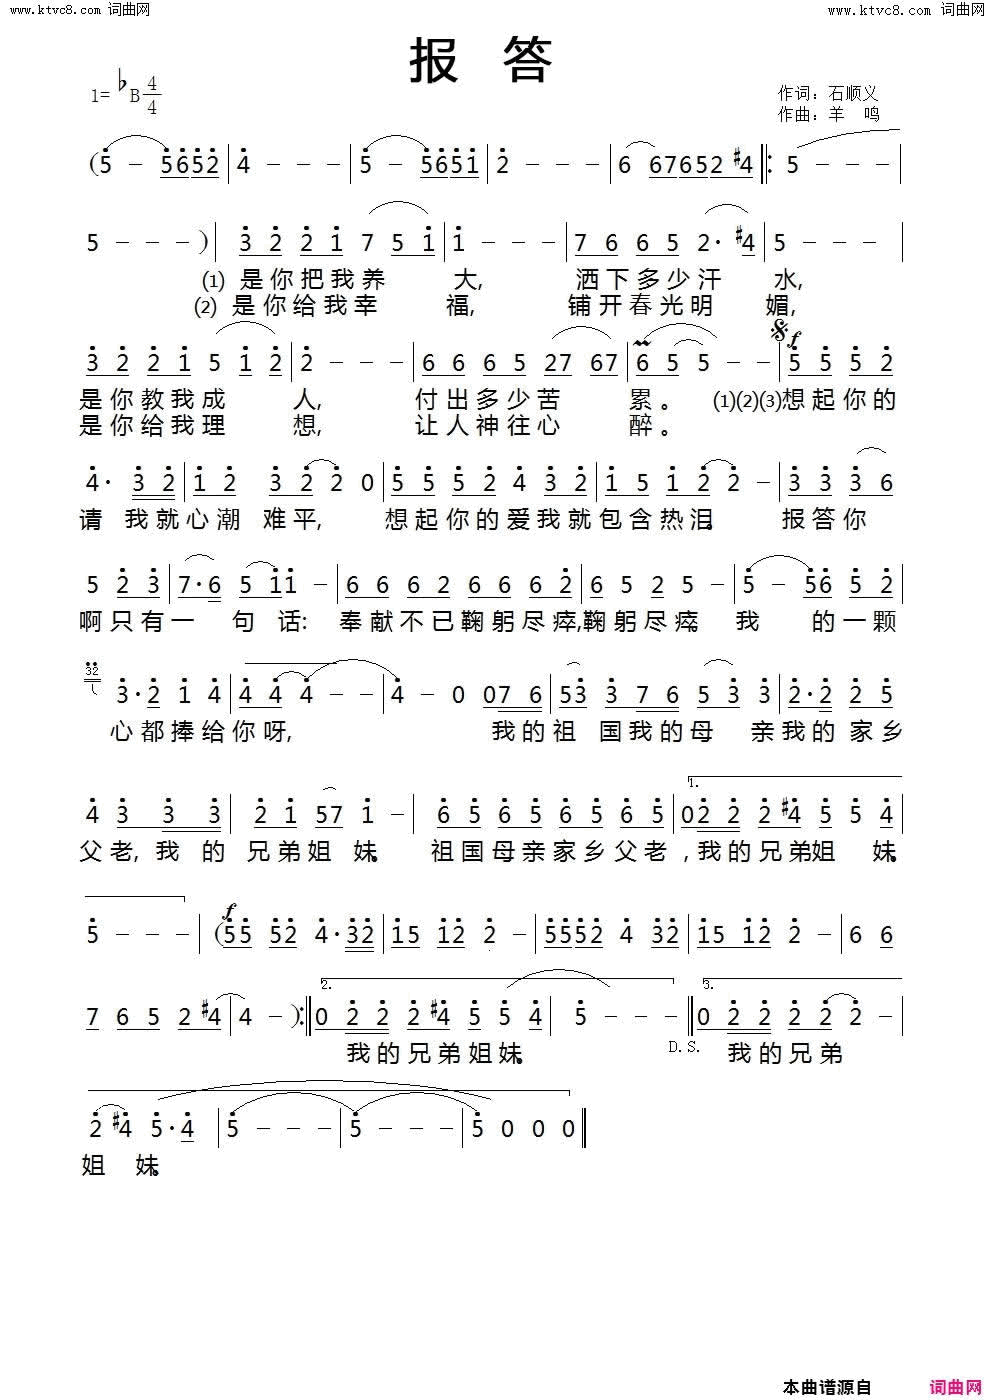 www.ktvc8.com 词曲网
www.ktvc8.com 词曲网
报 答
1=♭B 4/4
作词：石顺义
作曲：羊 鸣
(5 - 5652 | 4 - - - | 5 - 5651 | 2 - - - | 6 67652 #4 ‖: 5 - - - |
5 - - - ) | 3 2 2 1 7 5 1 | 1 - - - | 7 6 6 5 2· #4 | 5 - - -
⑴ 是你把我养 大, 洒下多少汗 水,
⑵ 是你给我幸 福, 铺开春光明 媚,
f
3 2 2 1 5 1 2 | 2 - - - | 6 6 6 5 27 67 | 6 5 5 - - | 5 5 5 2
是你教我成 人, 付出多少苦 累。 ⑴⑵⑶想起你的
是你给我理 想, 让人神往心 醉。
4· 3 2 | 1 2 3 2 2 0 | 5 5 5 2 4 3 2 | 1 5 1 2 2 - | 3 3 3 6
请 我就心潮 难平, 想起你的爱我就包含热泪。 报答你
5 2 3 | 7·6 5 11 - | 6 6 6 2 6 6 6 2 | 6 5 2 5 - | 5 - 56 5 2
啊只有一 句 话: 奉献不已鞠躬尽瘁,鞠躬尽瘁。 我 的一颗
32 3·2 1 4 | 4 4 4 - - | 4 - 0 076 | 53 3 76 5 3 3 | 2·2 2 5
心都捧给你呀, 我的祖 国我的母 亲我的家乡
4 3 3 3 | 2 1 57 1 - | 6 5 6 5 6 5 6 5 | 1. 022 2 #4 5 5 4
父老, 我 的 兄弟姐 妹。 祖国母亲家乡父老 ,我的兄弟姐 妹。
f
5 - - - | (55 52 4·32 | 15 12 2 - | 5552 4 32 | 15 12 2 - | 6 6
7 6 5 2 #4 | 4 - ):‖ 2. 0 2 2 2 #4 5 5 4 | 5 - - - ‖ 3. 0 2 2 2 2 2 -
我的兄弟姐妹。 D.S. 我的兄弟
2 #4 5·4 | 5 - - - | 5 - - - | 5 0 0 0 ‖
姐 妹。
本曲谱源自 词曲网